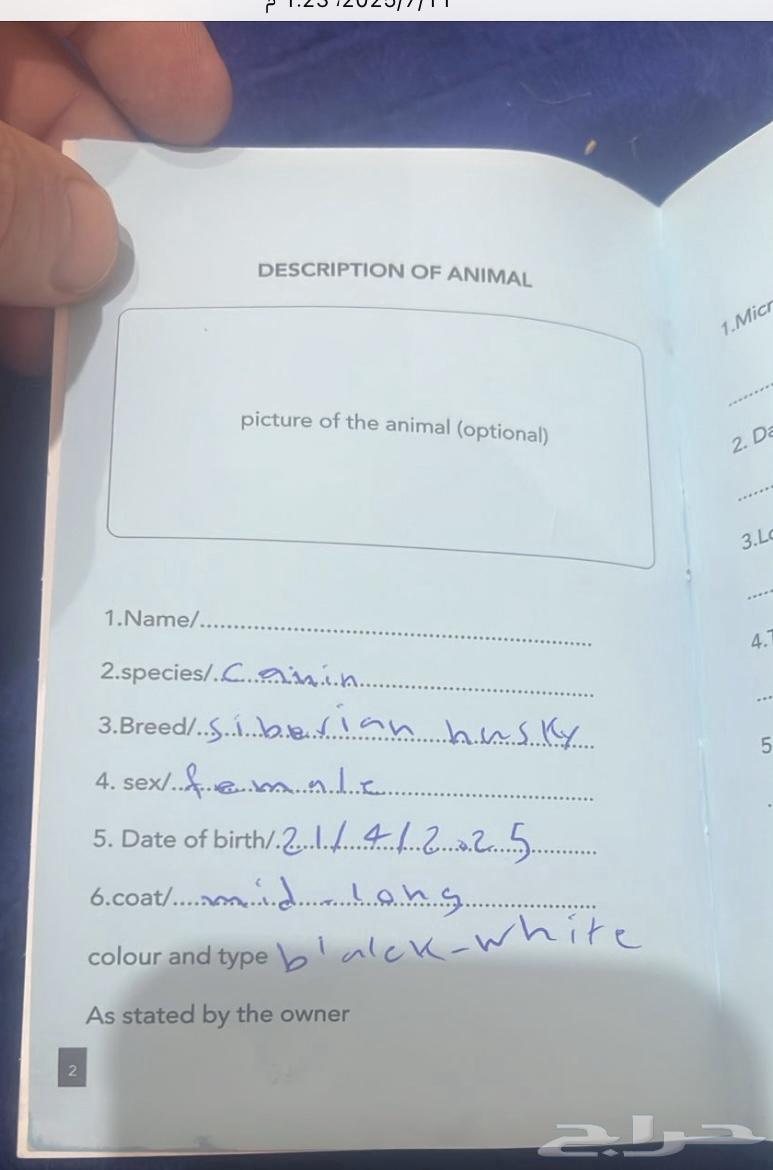 2025/7/11، 1:23 م
DESCRIPTION OF ANIMAL
picture of the animal (optional)
1.Name/
2.species/. Canin
3.Breed/. siberian husky
4. sex/. female
5. Date of birth/. 21/4/2025
6.coat/ mid-long
colour and type black-white
As stated by the owner
2
1.Micr
2. Da
3.Lo
4.T
5
حراج